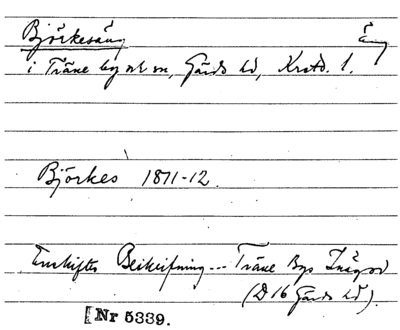 Björkesäng äng
i Träne by ock sn, Gärds hd, Krstd. l.
Björkes 1811-12.
Enskiftes Beskrifning... Träne Bys Inägor
(D 16 Gärds hd).
[Nr 5339.